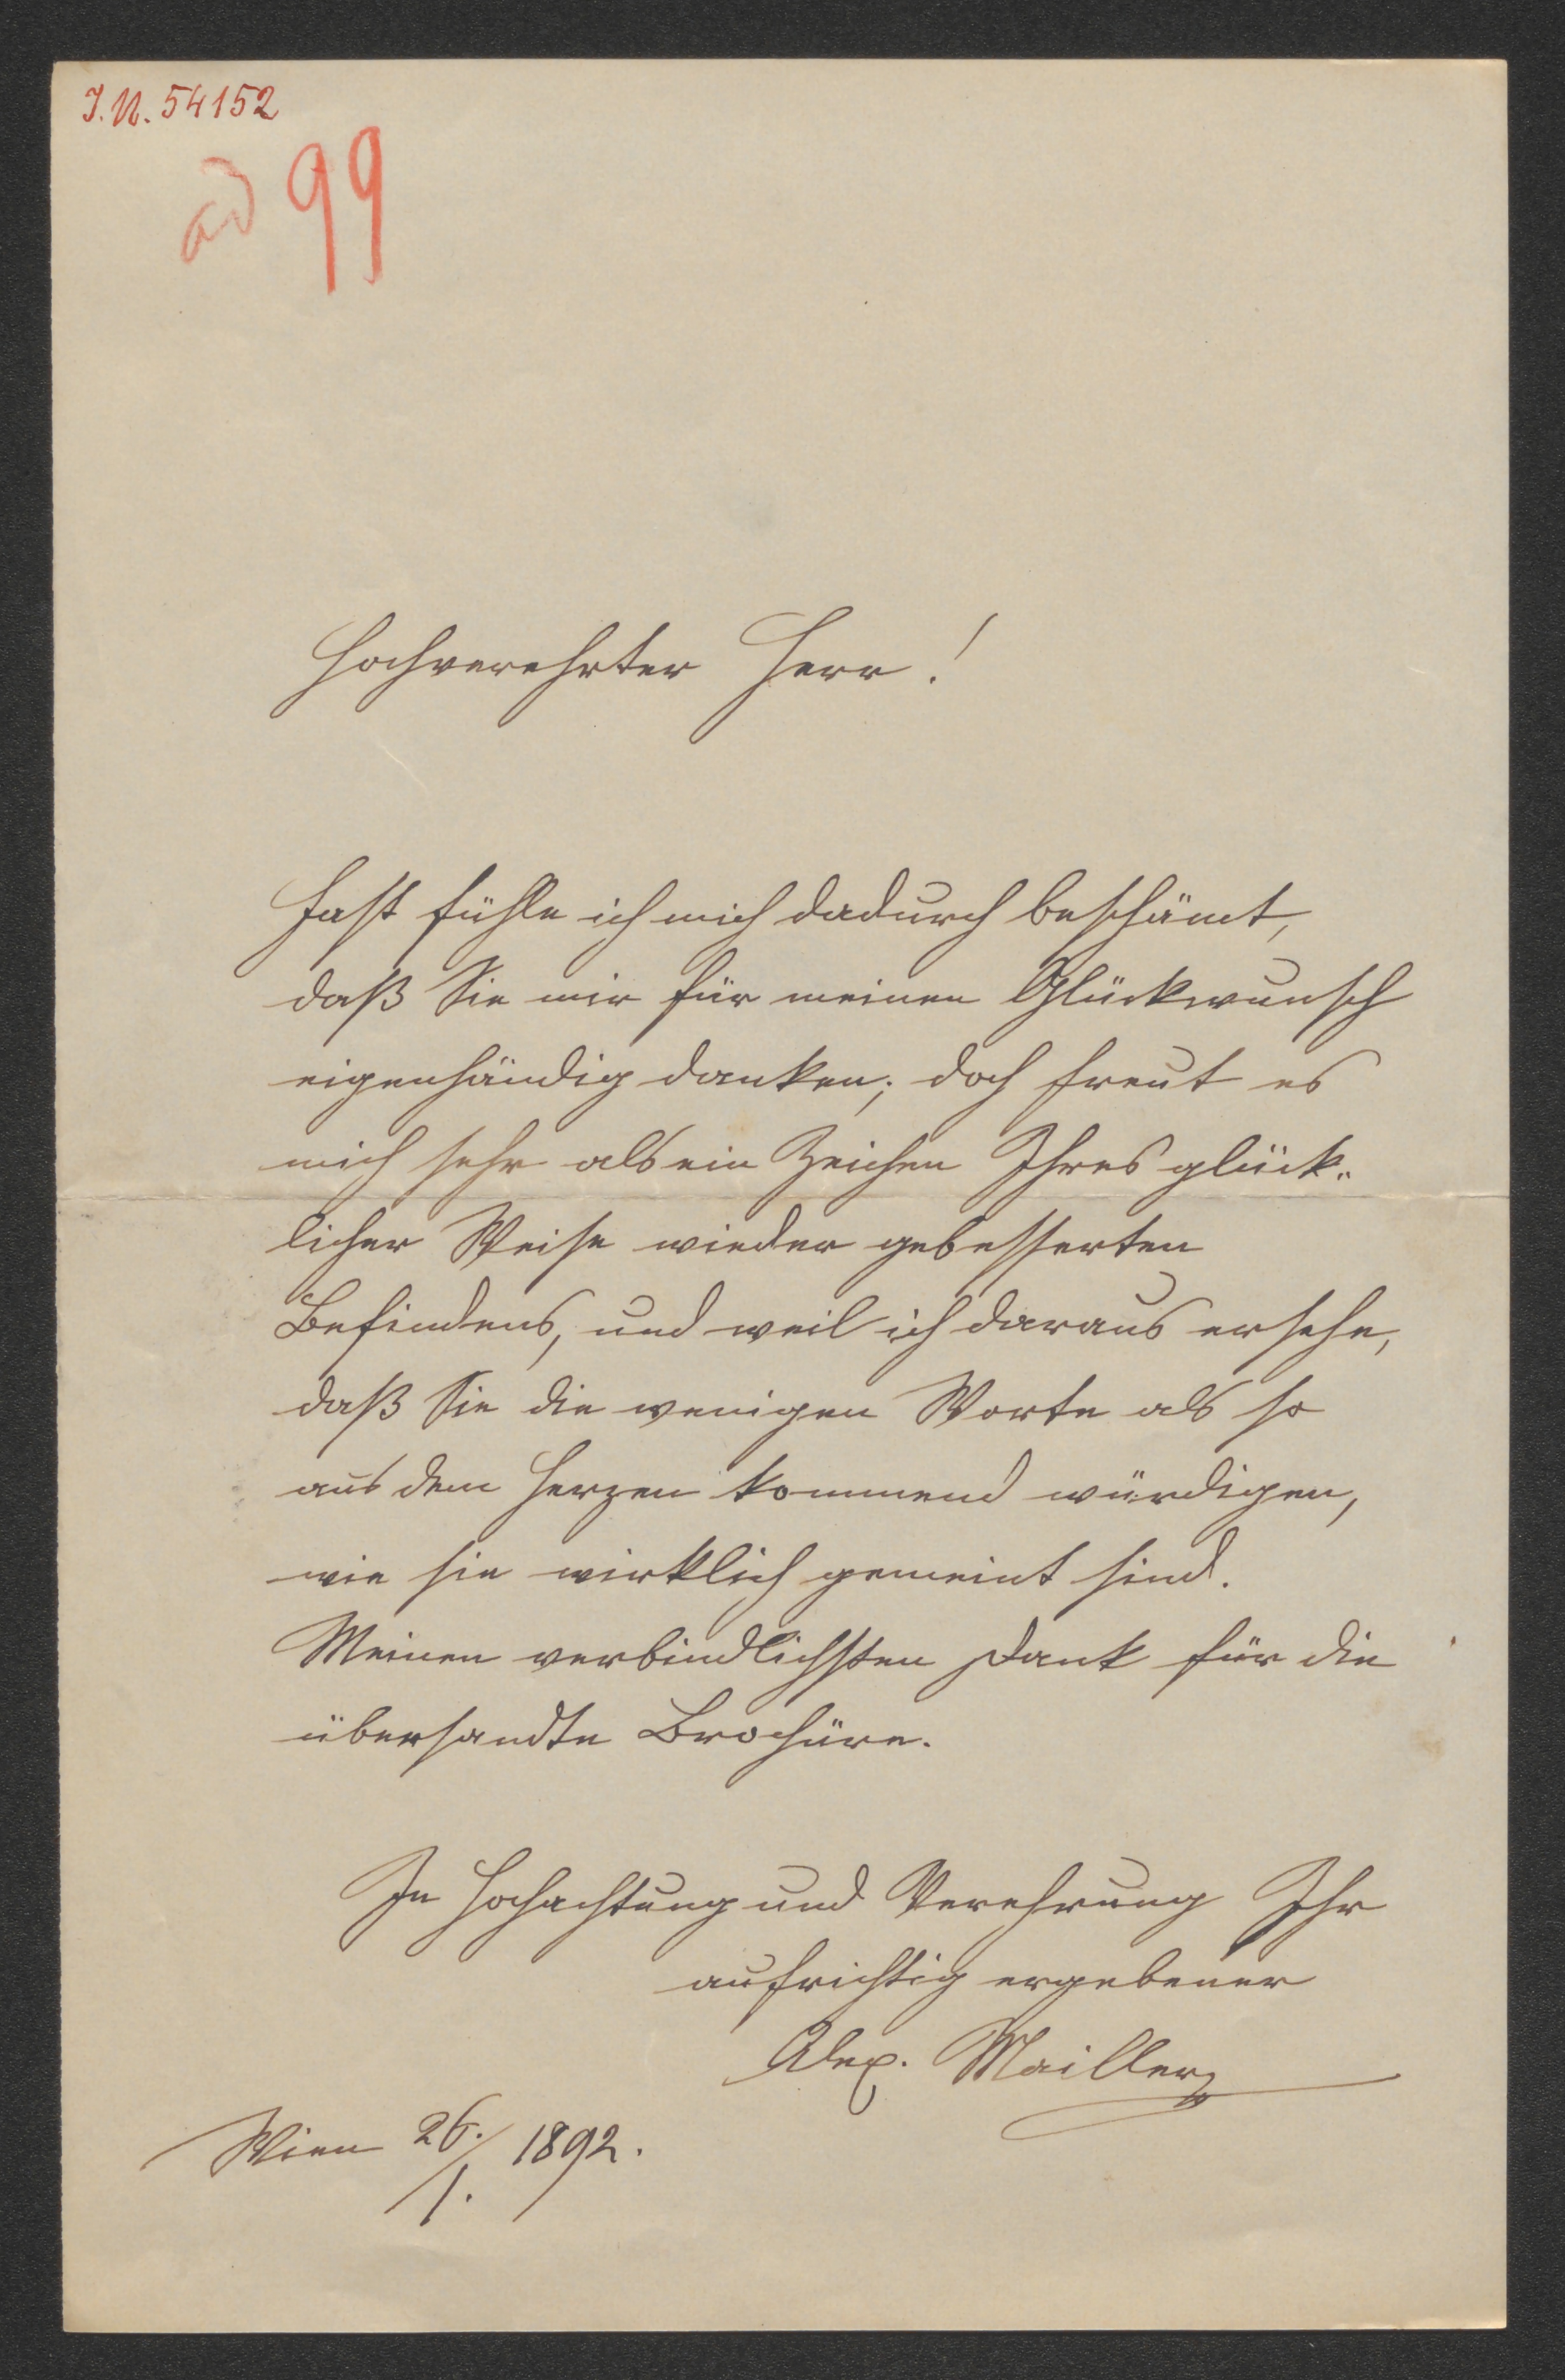 I.N. 54152
ad 99
Hochverehrter Herr!
Fast fühle ich mich dadurch beschämt,
daß Sie mir für meinen Glückwunsch
eigenhändig danken; doch freut es
mich sehr als ein Zeichen Ihres glück-
licher Weise wieder gebesserten
Befindens, und weil ich daraus ersehe,
daß Sie die wenigen Worte als so
aus dem Herzen kommend würdigen,
wie sie wirklich gemeint sind.
Meinen verbindlichsten Dank für die
übersandte Brochüre.
In Hochachtung und Verehrung Ihr
aufrichtig ergebener
Alex. Mailler
Wien 26./1. 1892.